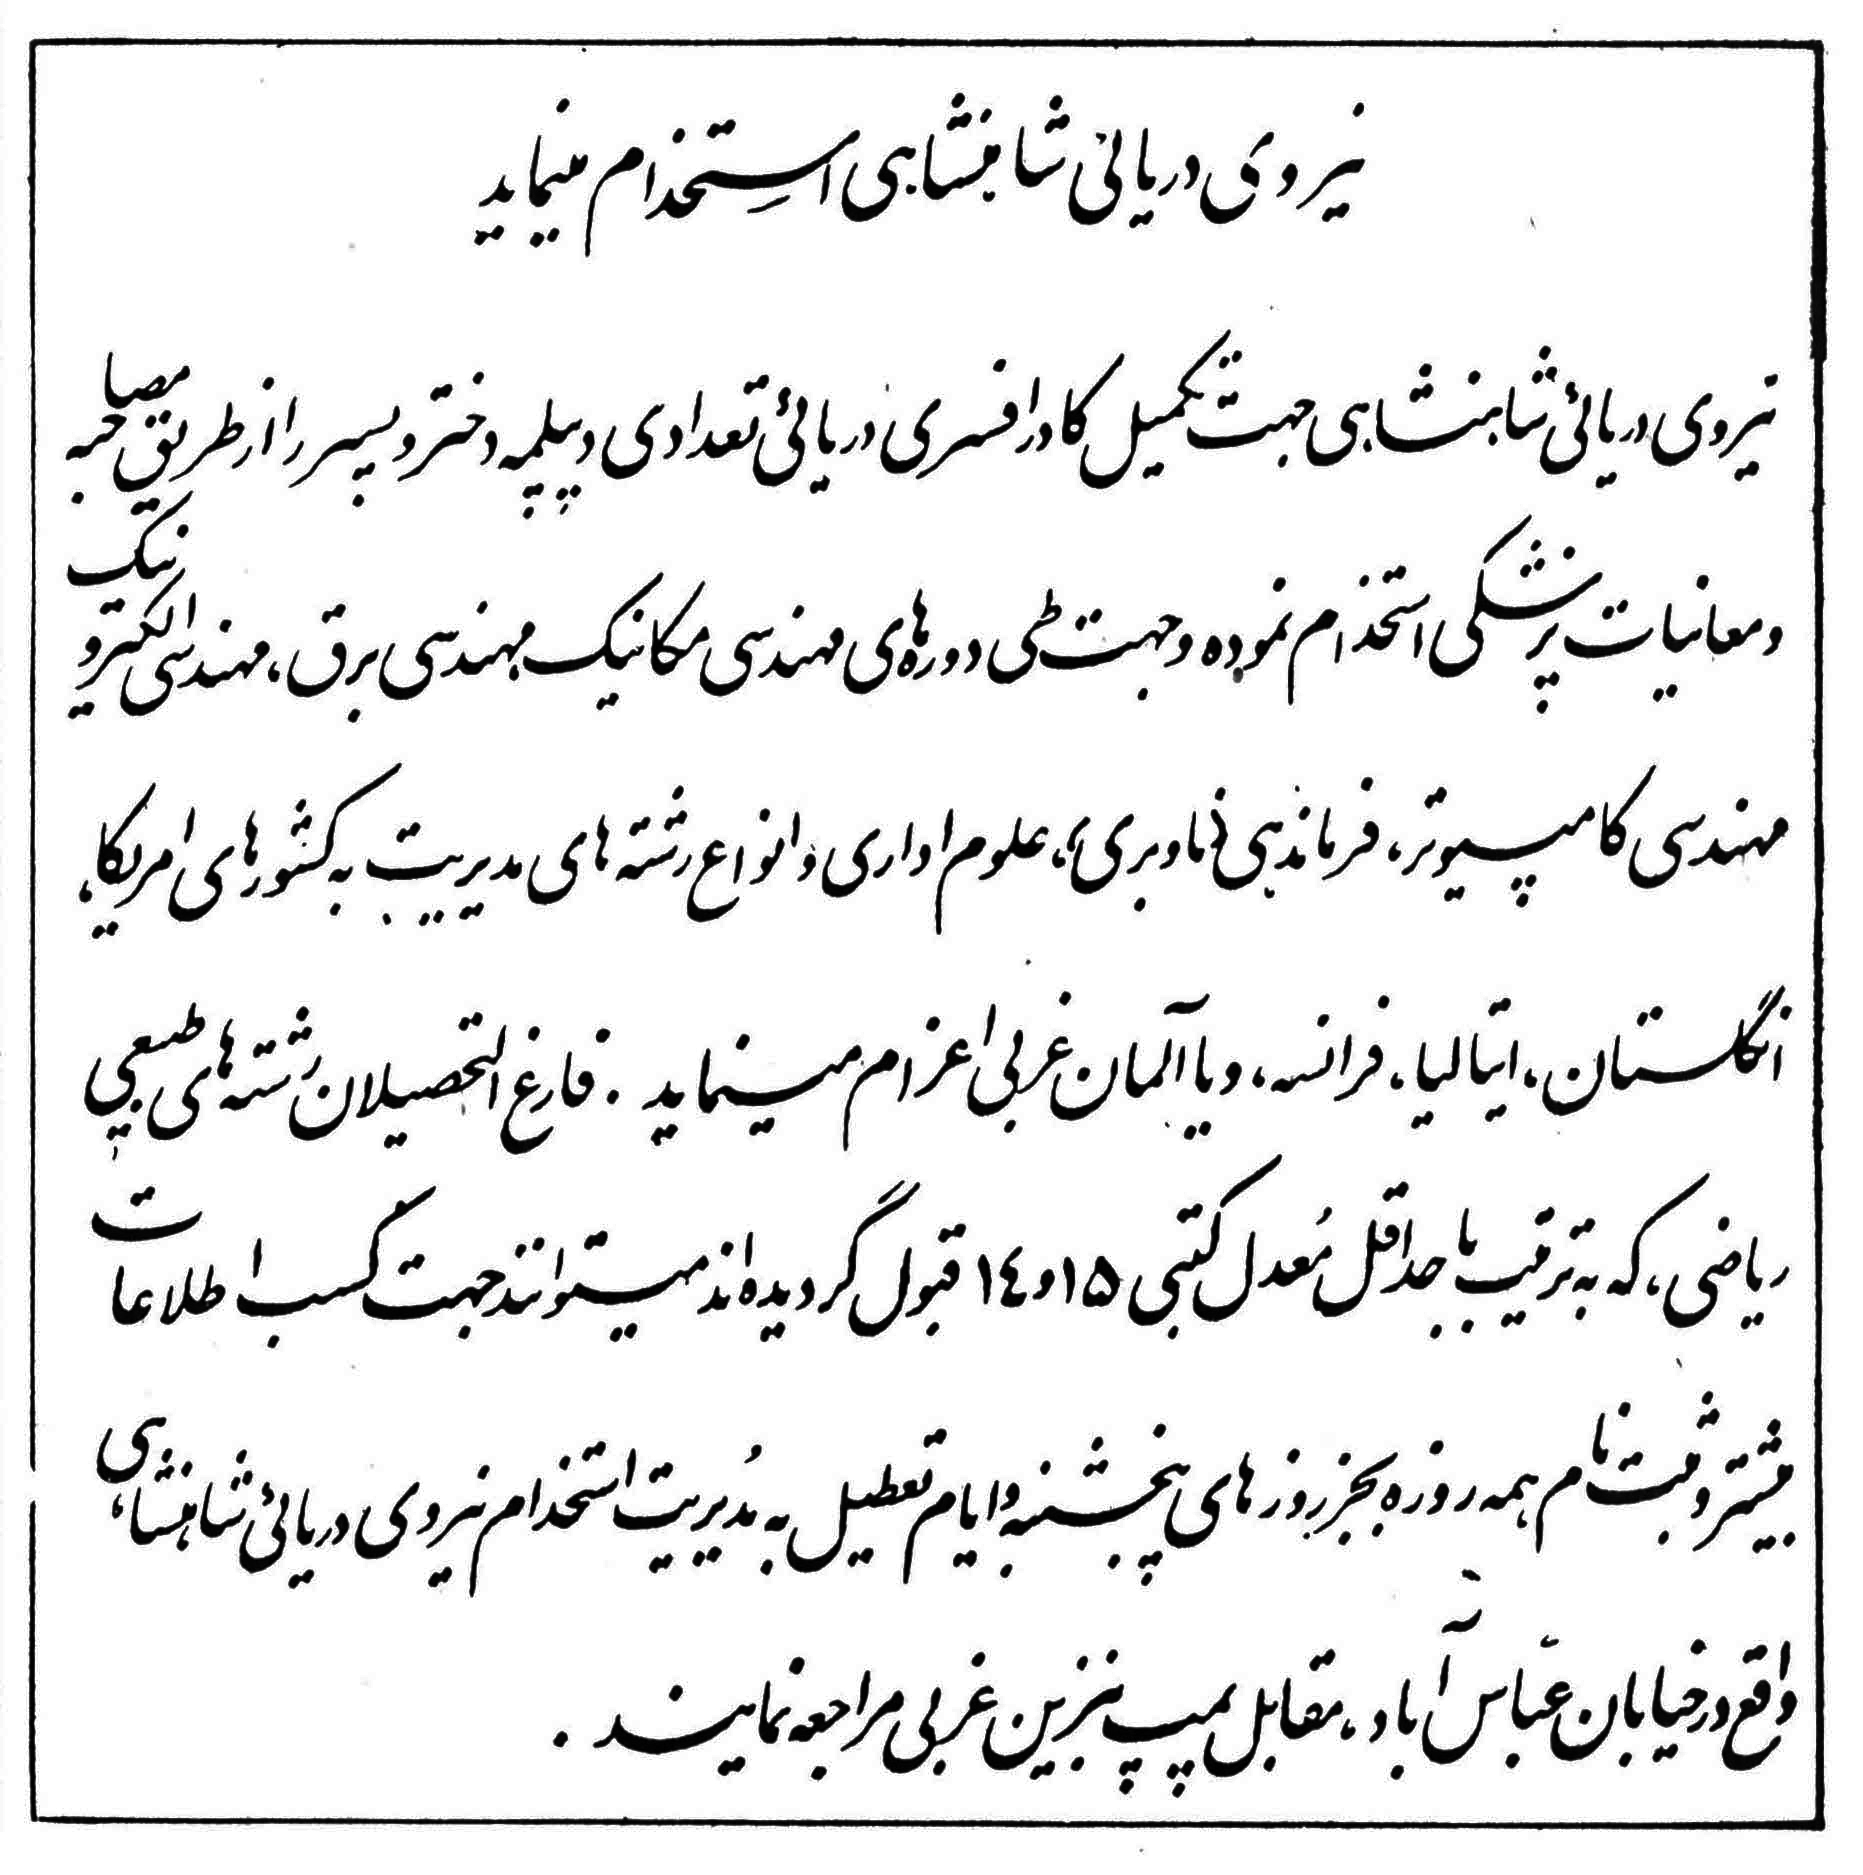 نیروی دریائی شاهنشاهی استخدام مینماید
نیروی دریائی شاهنشاهی جهت تکمیل کادر افسری دریائی تعدادی دیپلمه دختر و پسر را از طریق مصاحبه
و معاینات پزشکی استخدام نموده و جهت طی دوره‌های مهندسی مکانیک مهندسی برق، مهندسی الکترونیک
مهندسی کامپیوتر، فرماندهی (ناوبری)، علوم اداری و انواع رشته های مدیریت به کشورهای امریکا،
انگلستان، ایتالیا، فرانسه، و یا آلمان غربی اعزام مینماید . فارغ التحصیلان رشته های طبیعی
ریاضی، که به ترتیب با حداقل مُعدل کتبی ۱۵ و ۱٤ قبول گردیده‌اند میتوانند جهت کسب اطلاعات
بیشتر و ثبت نام همه روزه بجز روزهای پنجشنبه و ایام تعطیل به مُدیریت استخدام نیروی دریائی شاهنشاهی،
واقع در خیابان عبّاس آباد، مقابل پمپ بنزین غربی مراجعه نمایند .